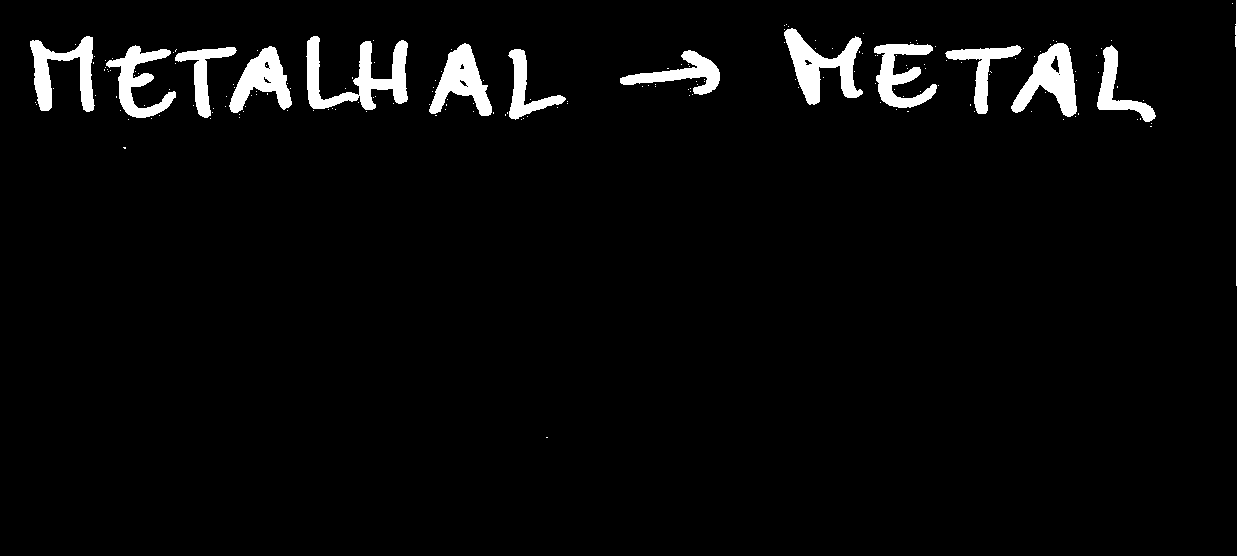 METALHAL → METAL